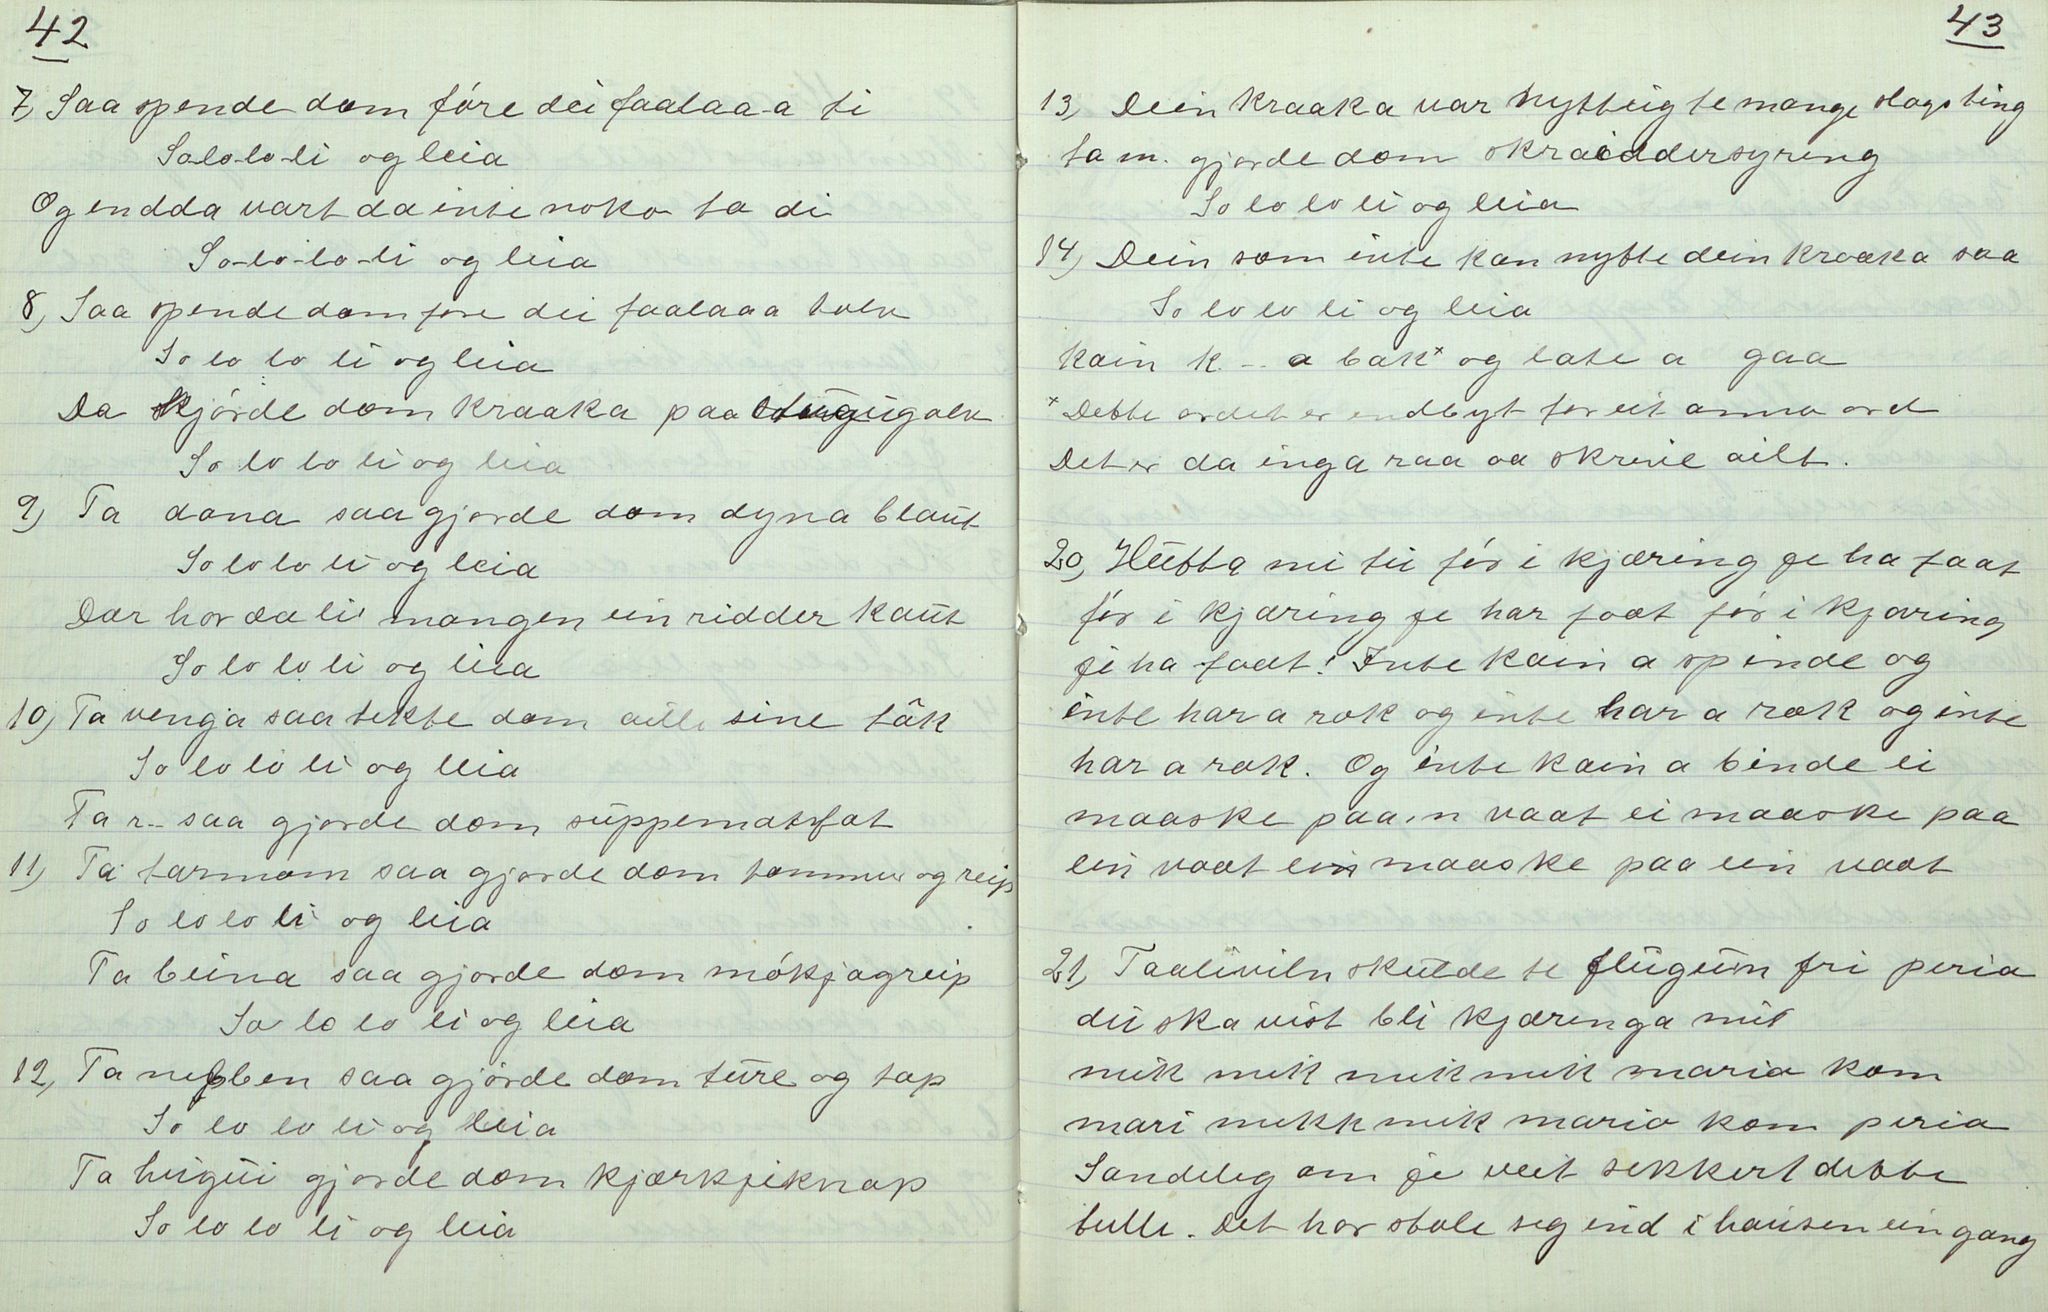 42
7, Saa spende dom fóre dei faalaa-a ti
So-lo-lo-li og leia
Og endda vart da inte noko ta di
So-lo-lo-li og leia
8, Saa spende dom fore dei faalaaa tolv
So lo lo li og leia
Da kjórde dom kraaka paa
So lo lo li og leia
9, Ta dona saa gjorde dom dyna blaut
So lo lo li og leia
Dær hor aa li mangen ein ridder kaut
So lo lo li og leia
10, Ta venga saa tekte dom aille sine tåk
So lo lo li og leia
Ta r-- saa gjorde dom suppematsfat
11, Ta tarmom saa gjorde dom tommer og reip
So lo lo li og leia
Ta beina saa gjorde dom mókjagreip
So lo lo li og leia
12, Ta nebben saa gjórde dom ture og tap
So lo lo li og leia
Ta hugui gjorde dom kjærkjeknap
So lo lo li og leia
43
13, Dein kraaka var nytteig te mange slags ting
ta m. gjorde dom skraiddersyreng
So lo lo li og leia
14, Dein som inte kan nytte dein kraaka saa
So lo lo li og leia
kain k -- a bak x og late a gaa
x Dette ordet er endbyt for eit anna ord
Det er da inga raa aa skrive ailt.
20, Hutta mi tu fór i kjæring je ha faat
fór i kjæring je har faat fór i kjæring
je ha faat! Inte kain a spinde og
inte har a rok og inte har a rok og inte
har a rok. Og inte kain a binde ei
maaske paa.n vaat ei maaske paa
ein vaat ein maaske paa ein vaat
21, Taaliviln skulde te flugum fri peria
du ska vist bli kjæringa mi
mik mik mik mik maria kom
mari mikk mik maria kom peria
Sandeleg om je veit sekkert dette
tulle. Det har stole seg ind i hausen ein gang